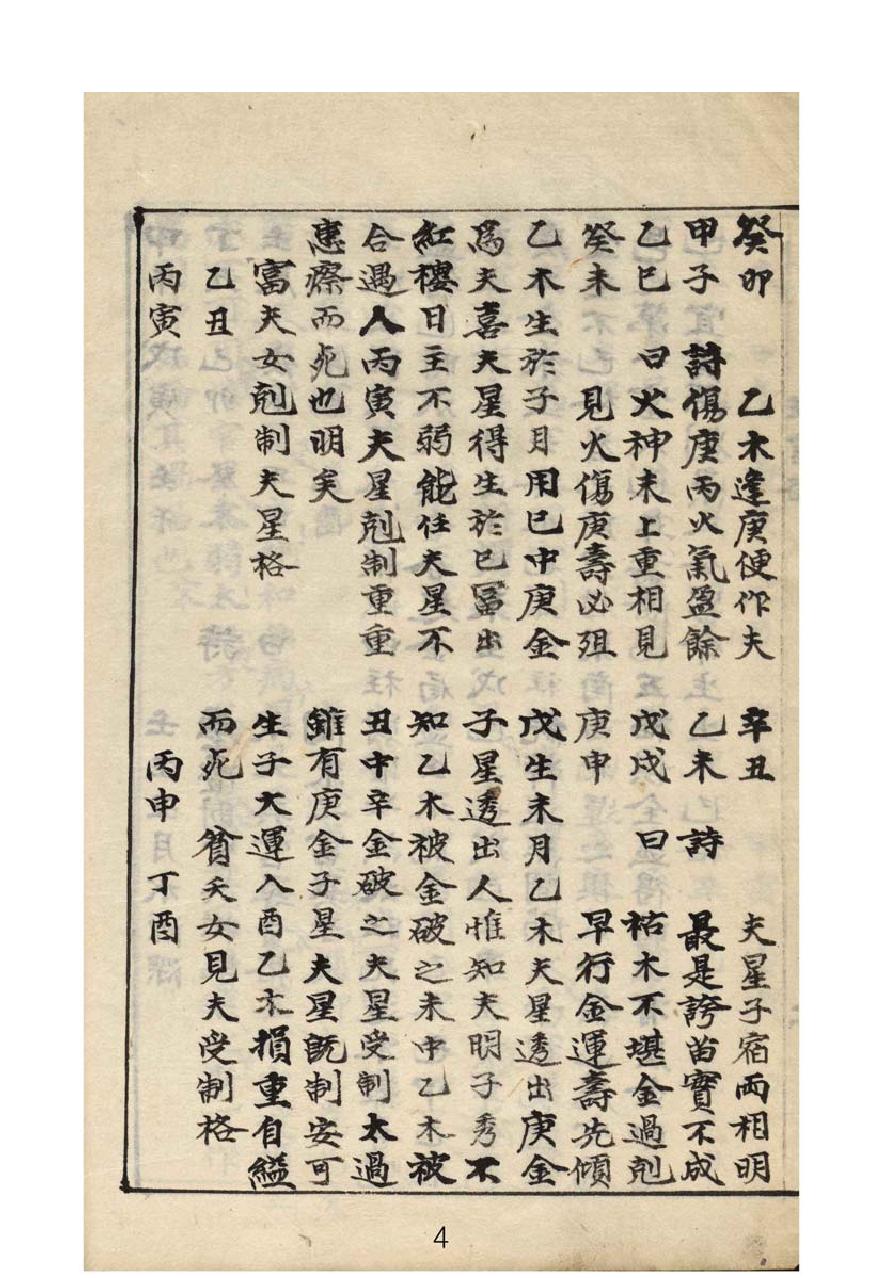 癸卯 乙木逢庚便作夫
甲子 詩傷庚丙火氣盈餘
乙巳 曰火神未上重相見
癸未 見火傷庚壽必殂
乙木生於子月用巳中庚金
爲夫喜夫星得生於巳冨出
紅樓日主不弱能任夫星不
合遇人丙寅夫星剋制重重
患瘵而死也明矣
富夫女剋制夫星格
乙丑
丙寅
辛丑 夫星子宿兩相明
乙未 詩 最是誇苗實不成
戊戌 曰 枯木不堪金過剋
庚申 早行金運壽先傾
戊生未月乙木夫星透出庚金
子星透出人惟知夫明子秀不
知乙木被金破之未中乙木被
丑中辛金破之夫星受制太過
雖有庚金子星夫星旣制安可
生子大運入酉乙木損重自縊
而死 貧夭女見夫受制格
丙申 丁酉
4